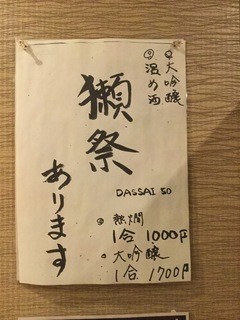 ◎大吟醸
◎温め酒
獺祭
あります
DASSAI 50
◎熱燗
1合 1000円
◎大吟醸
1合 1700円